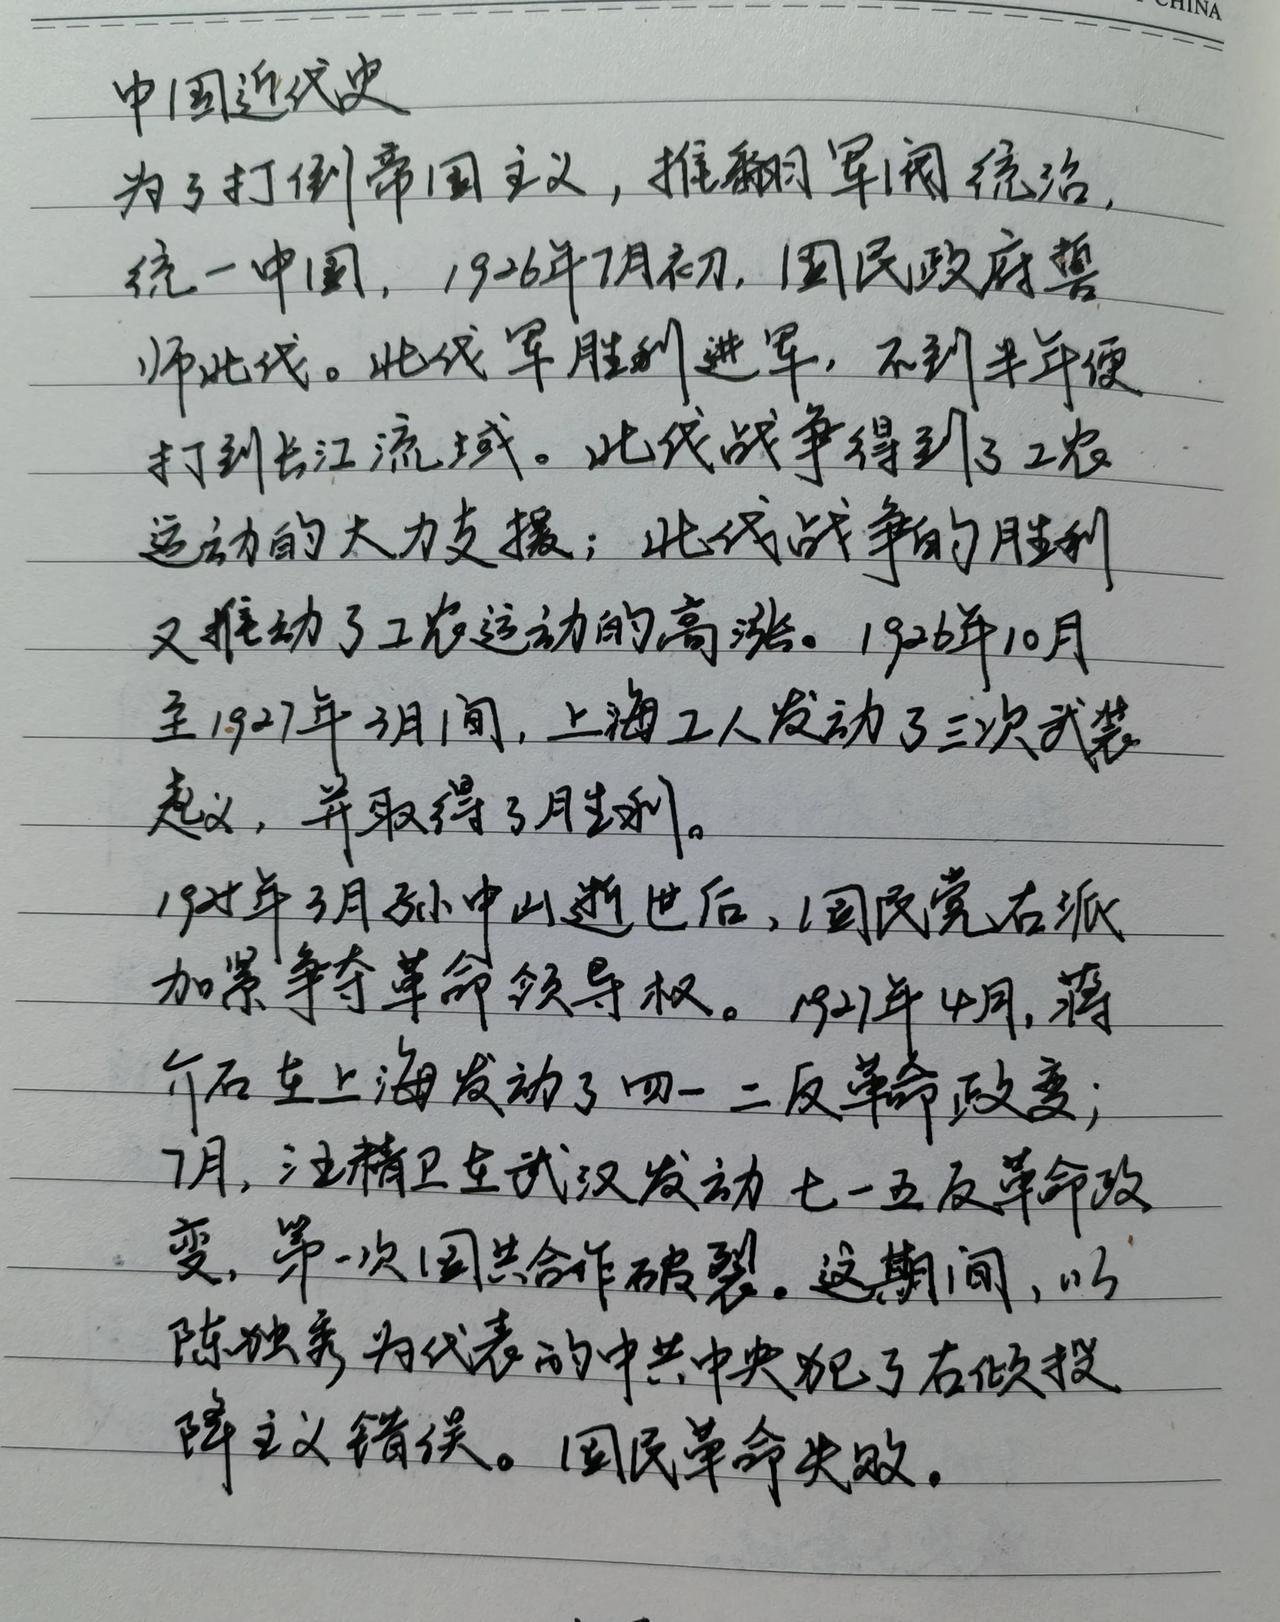 CHINA
中国近代史
为了打倒帝国主义，推翻军阀统治，
统一中国，1926年7月初，国民政府誓
师北伐。北伐军胜利进军，不到半年便
打到长江流域。北伐战争得到了工农
运动的大力支援；北伐战争的胜利
又推动了工农运动的高涨。1926年10月
至1927年3月间，上海工人发动了三次武装
起义，并取得了胜利。
1925年3月孙中山逝世后，国民党右派
加紧争夺革命领导权。1927年4月，蒋
介石在上海发动了四一二反革命政变；
7月，汪精卫在武汉发动七一五反革命政
变，第一次国共合作破裂。这期间，以
陈独秀为代表的中共中央犯了右倾投
降主义错误。国民革命失败。